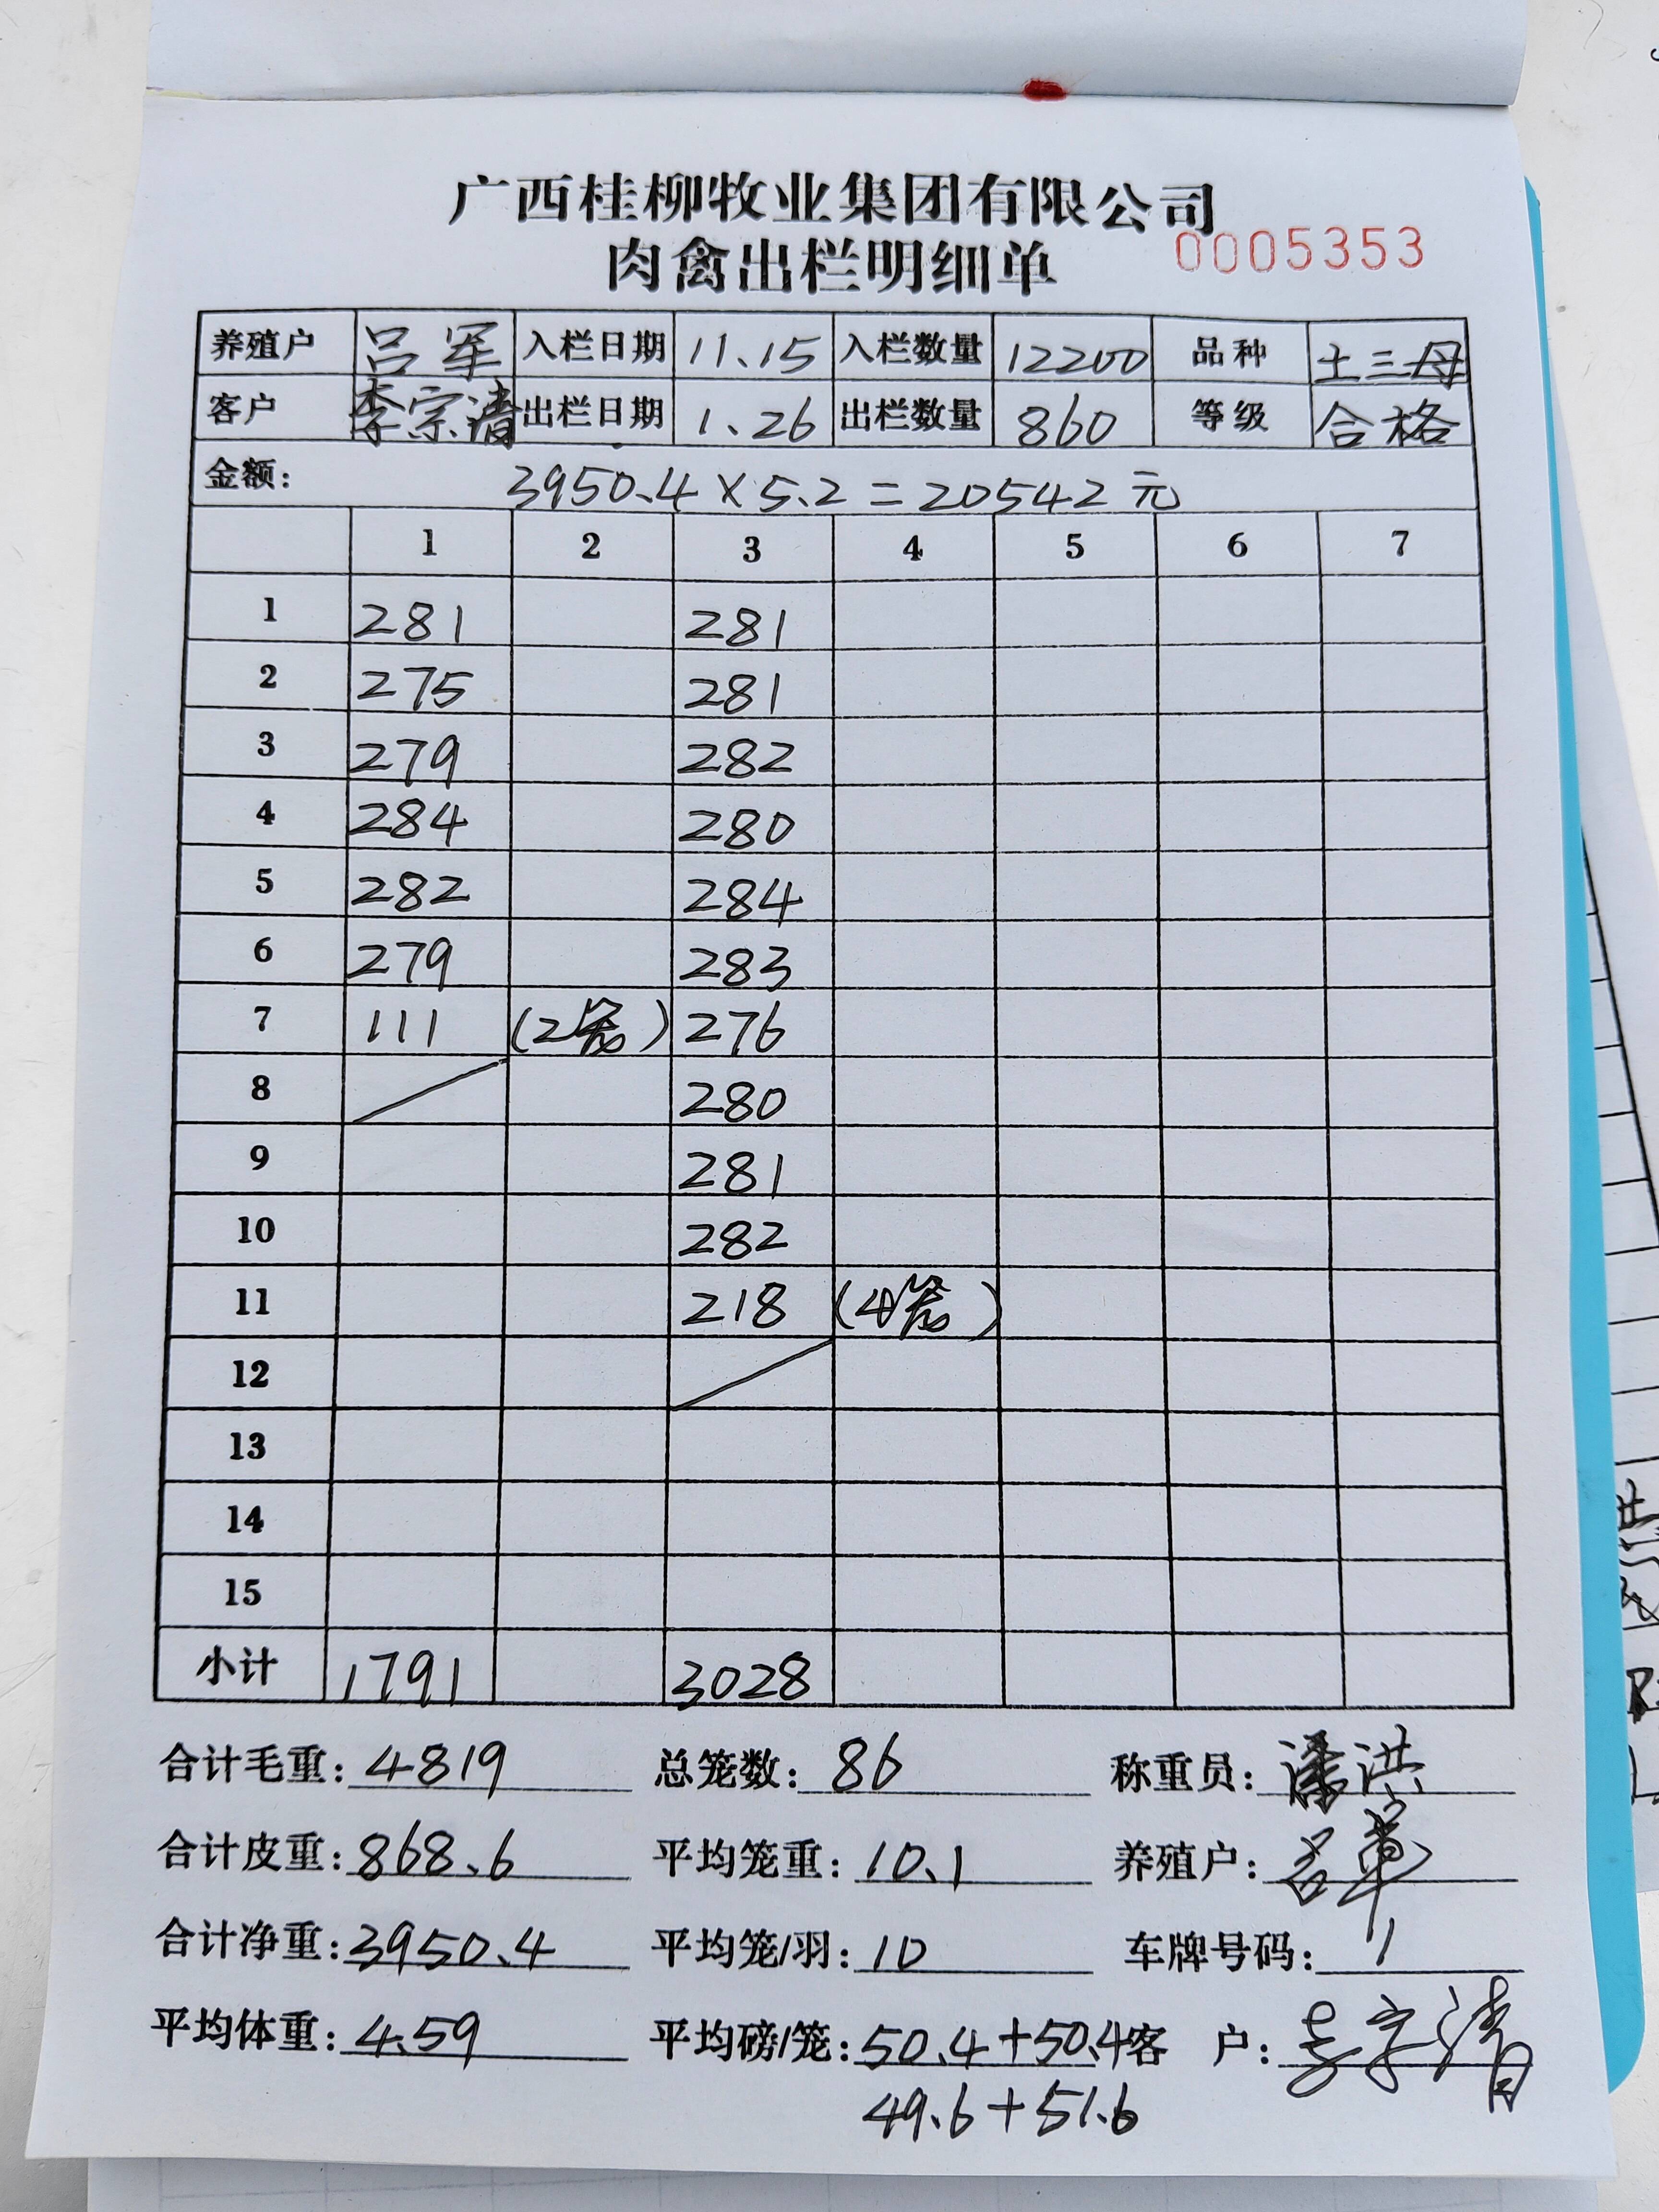 广西桂柳牧业集团有限公司
肉禽出栏明细单 0005353
养殖户 吕军 入栏日期 11.15 入栏数量 12200 品种 土三母
客户 李宗清 出栏日期 1.26 出栏数量 860 等级 合格
金额: 3950.4×5.2=20542元
1 2 3 4 5 6 7
1 281 281
2 275 281
3 279 282
4 284 280
5 282 284
6 279 283
7 111 (2笼) 276
8 280
9 281
10 282
11 218 (4笼)
12
13
14
15
小计 1791 3028
合计毛重: 4819 总笼数: 86 称重员: 潘洪
合计皮重: 868.6 平均笼重: 10.1 养殖户: 吕军
合计净重: 3950.4 平均笼/羽: 10 车牌号码:
平均体重: 4.59 平均磅/笼: 50.4+50.4 客 户: 李宗清
49.6+51.6